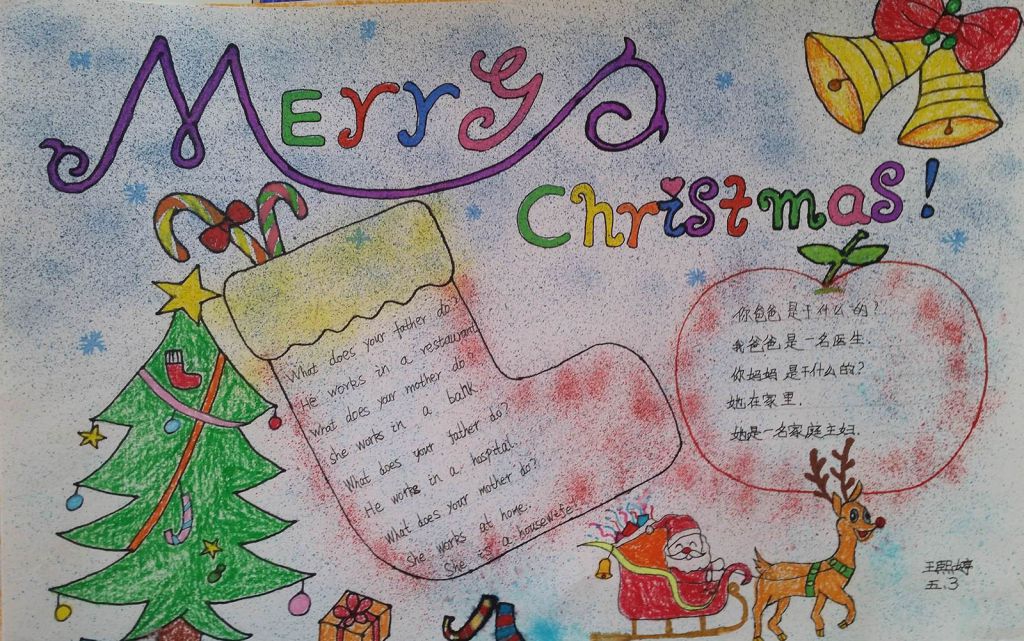 Merry
Christmas!
What does your father do?
He works in a restaurant.
what does your mother do?
she works in a bank.
What does your father do?
He works in a hospital.
What does your mother do?
She works at home.
She is a housewife.
你爸爸是干什么的?
我爸爸是一名医生.
你妈妈是干什么的?
她在家里.
她是一名家庭主妇.
王熙婷
五.3